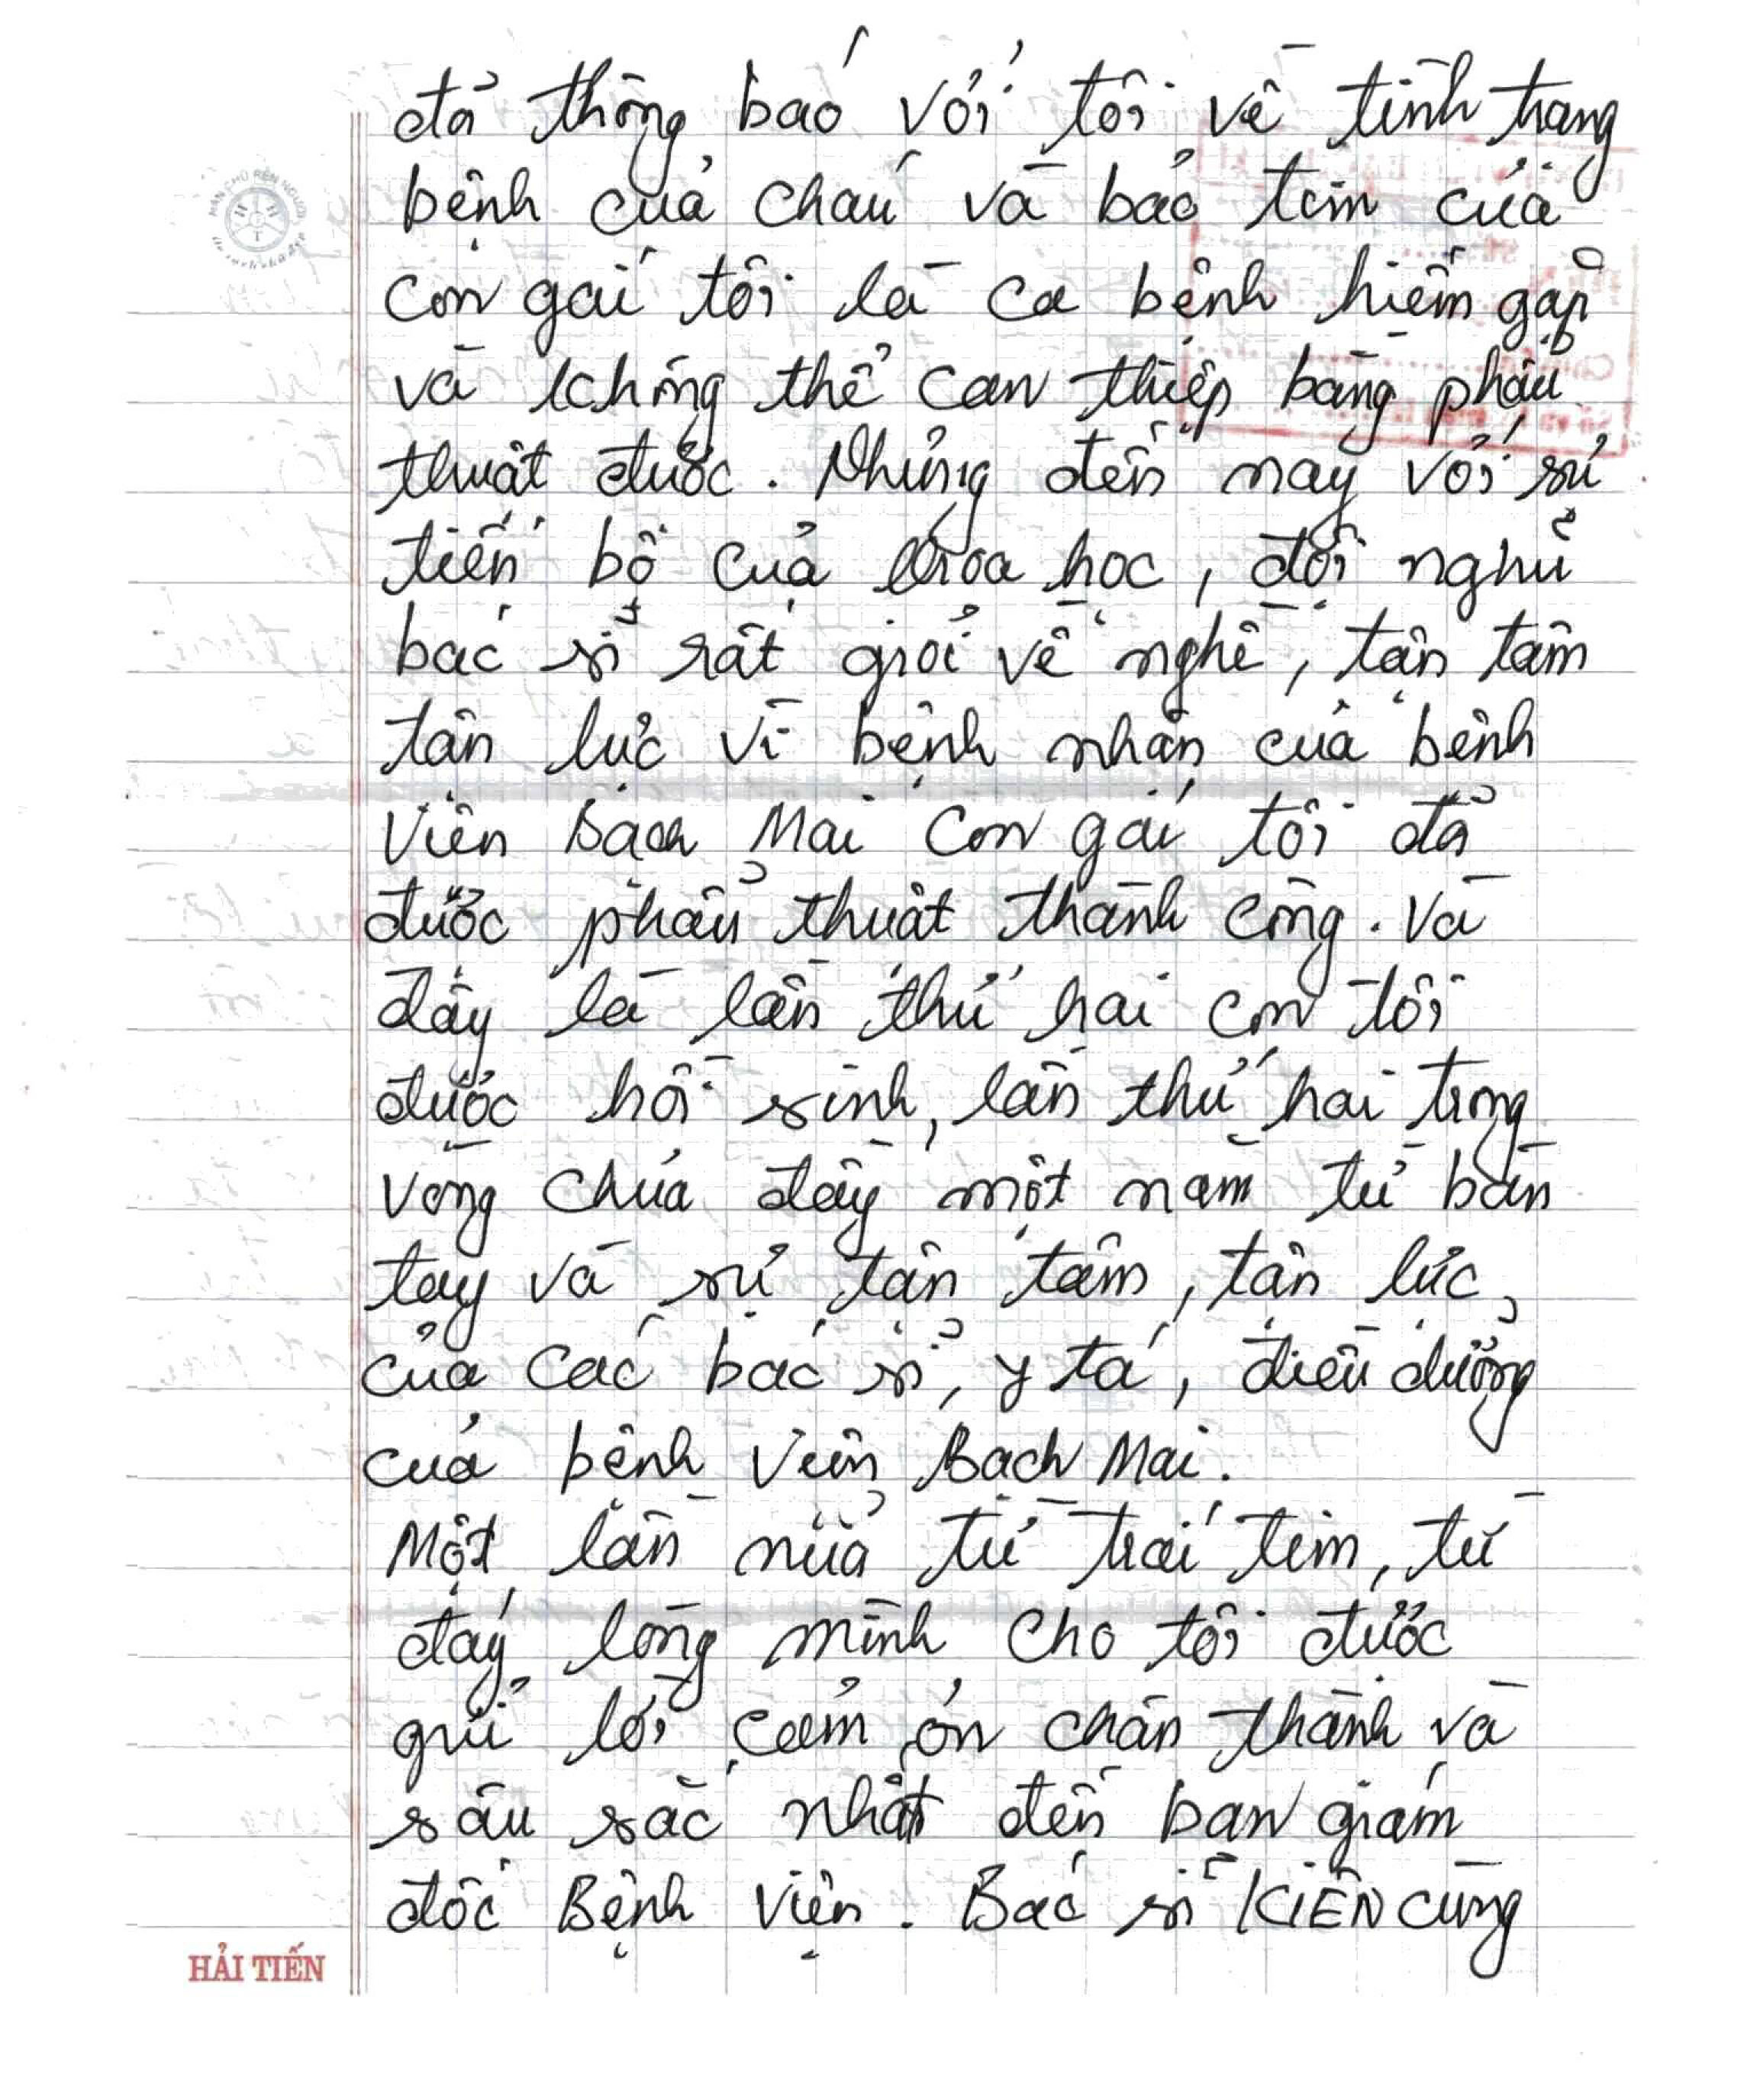 đã thông báo với tôi về tình trạng
bệnh của cháu và báo tim của
con gái tôi là ca bệnh hiếm gặp
và không thể can thiệp bằng phẫu
thuật được. Nhưng đến nay với sự
tiến bộ của khoa học, đội nghũ
bác sĩ rất giỏi về nghề, tận tâm
tận lực vì bệnh nhân của bệnh
Viện Bạch Mai con gái tôi đã
được phẫu thuật thành công. Và
đây là lần thứ hai con tôi
được hồi sinh, lần thứ hai trong
vòng chưa đầy một năm từ bàn
tay và sự tận tâm, tận lực,
của các bác sĩ, y tá, điều dưỡng
của bệnh viện Bạch Mai.
Một lần nữa từ trái tim, từ
đáy lòng mình cho tôi được
gửi lời cảm ơn chân thành và
sâu sắc nhất đến ban giám
đốc Bệnh Viện. Bác sĩ KIÊN cùng
HẢI TIẾN